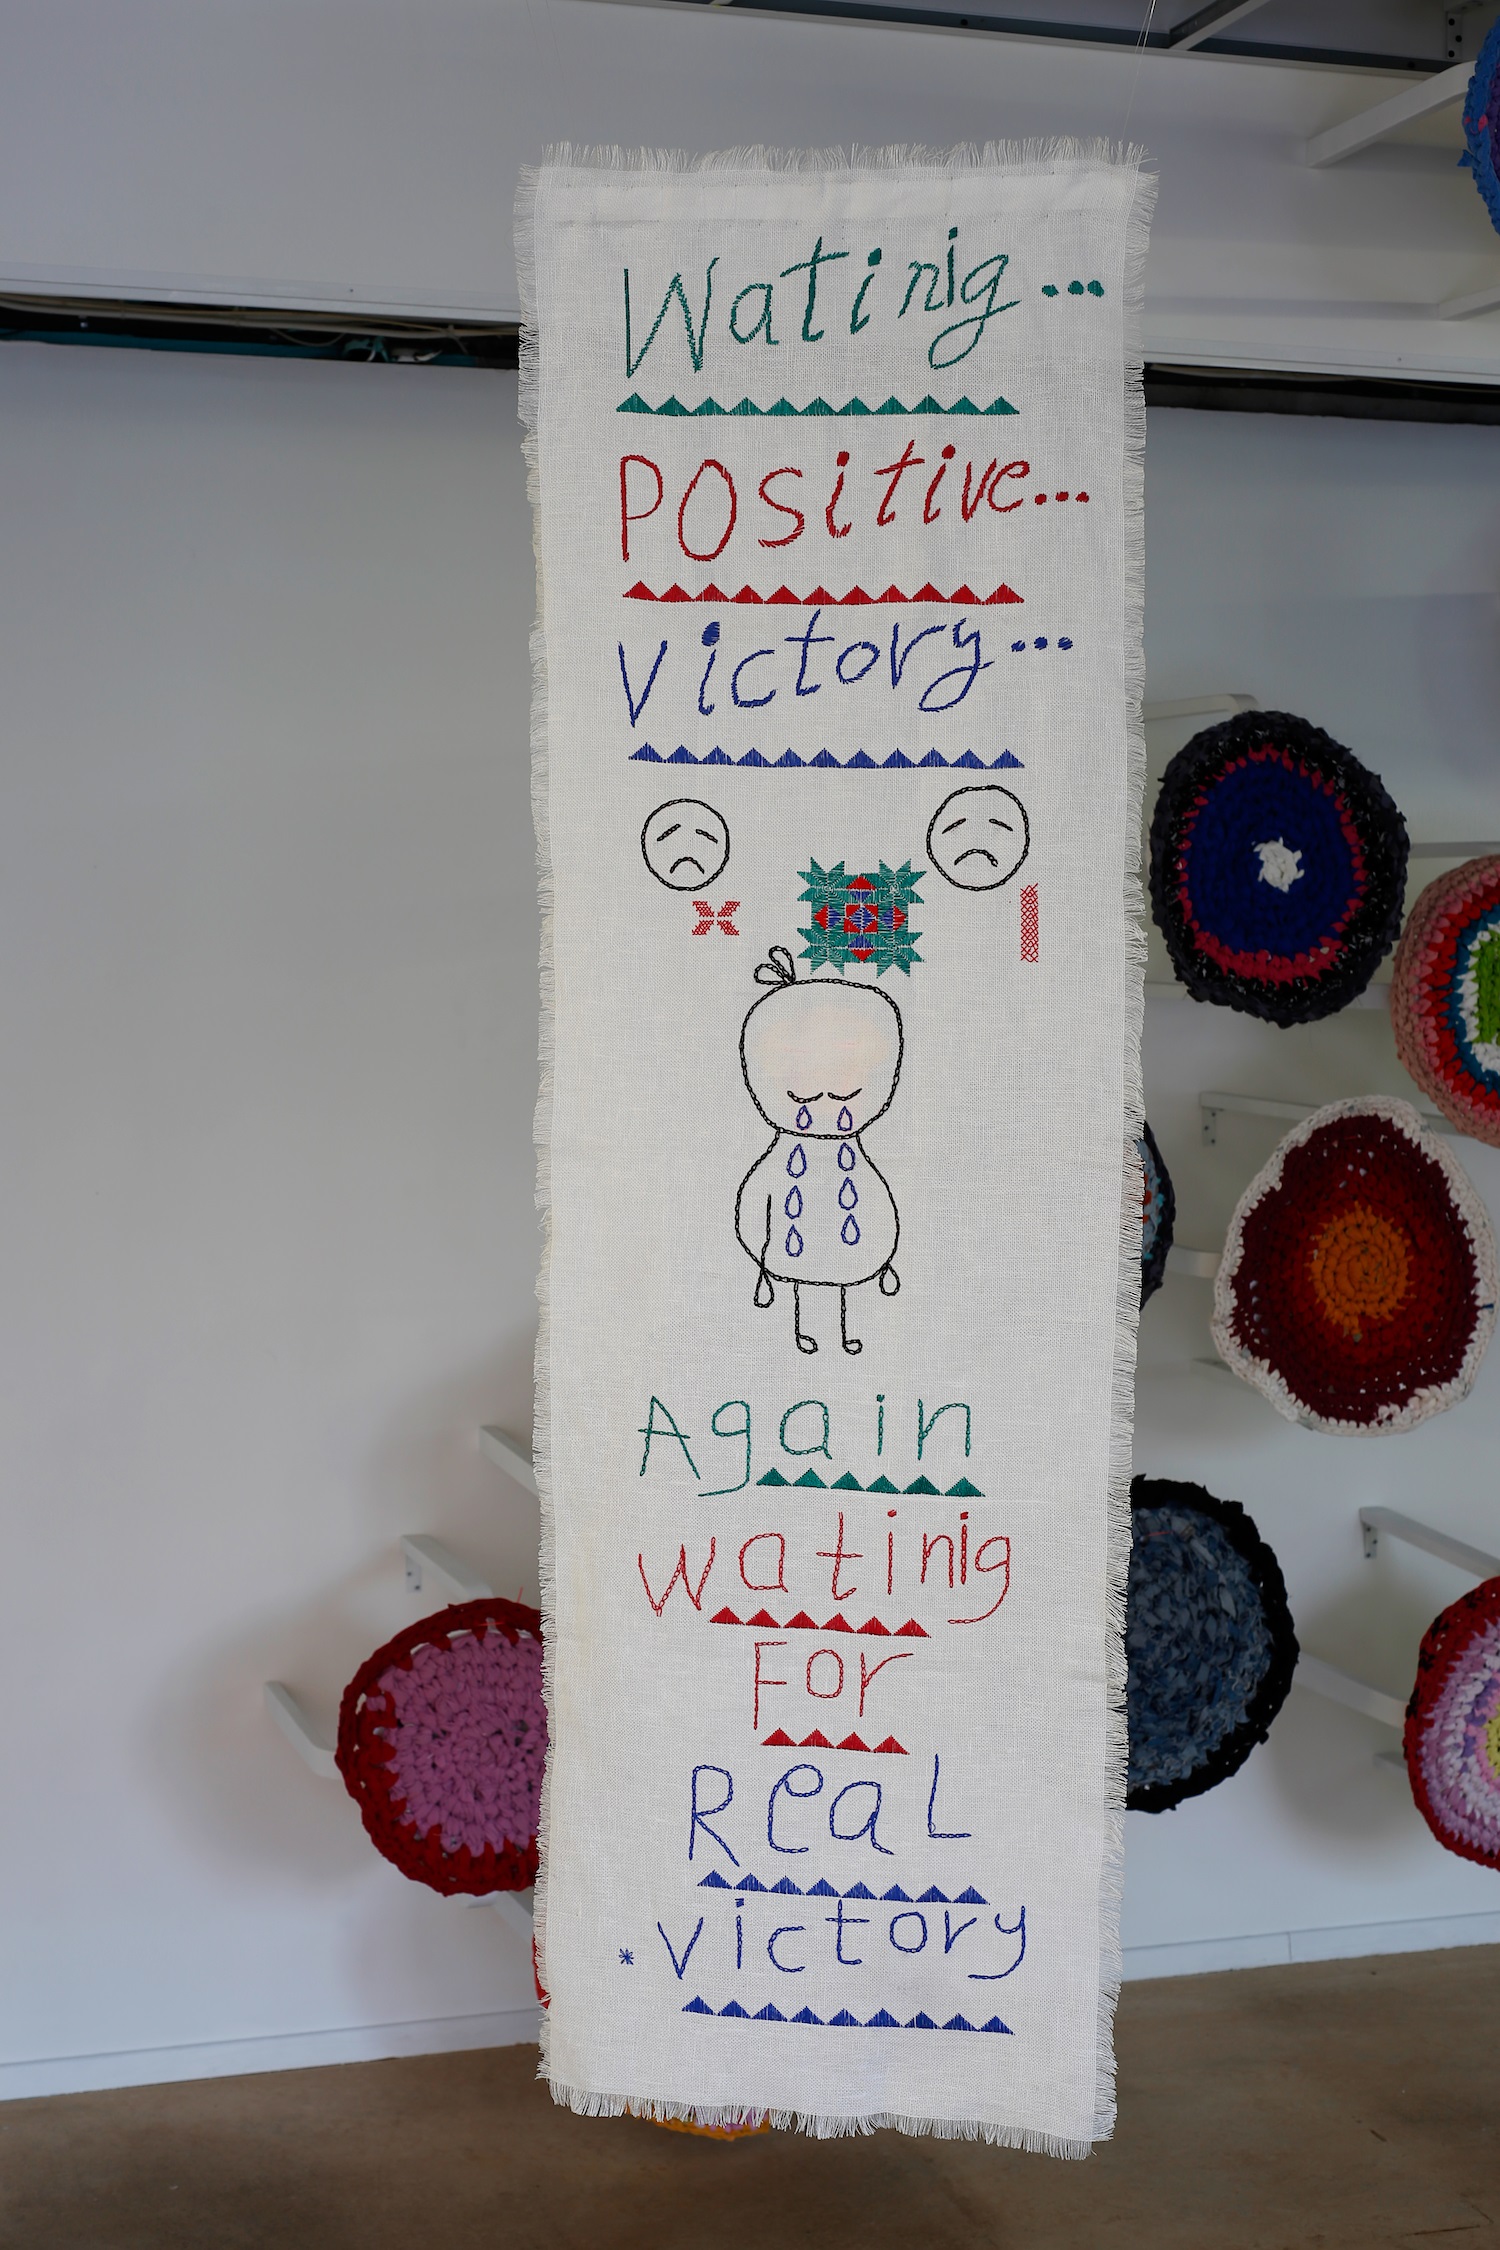 Watinig...
POsitive...
Victory...
Again
watinig
For
Real
*Victory